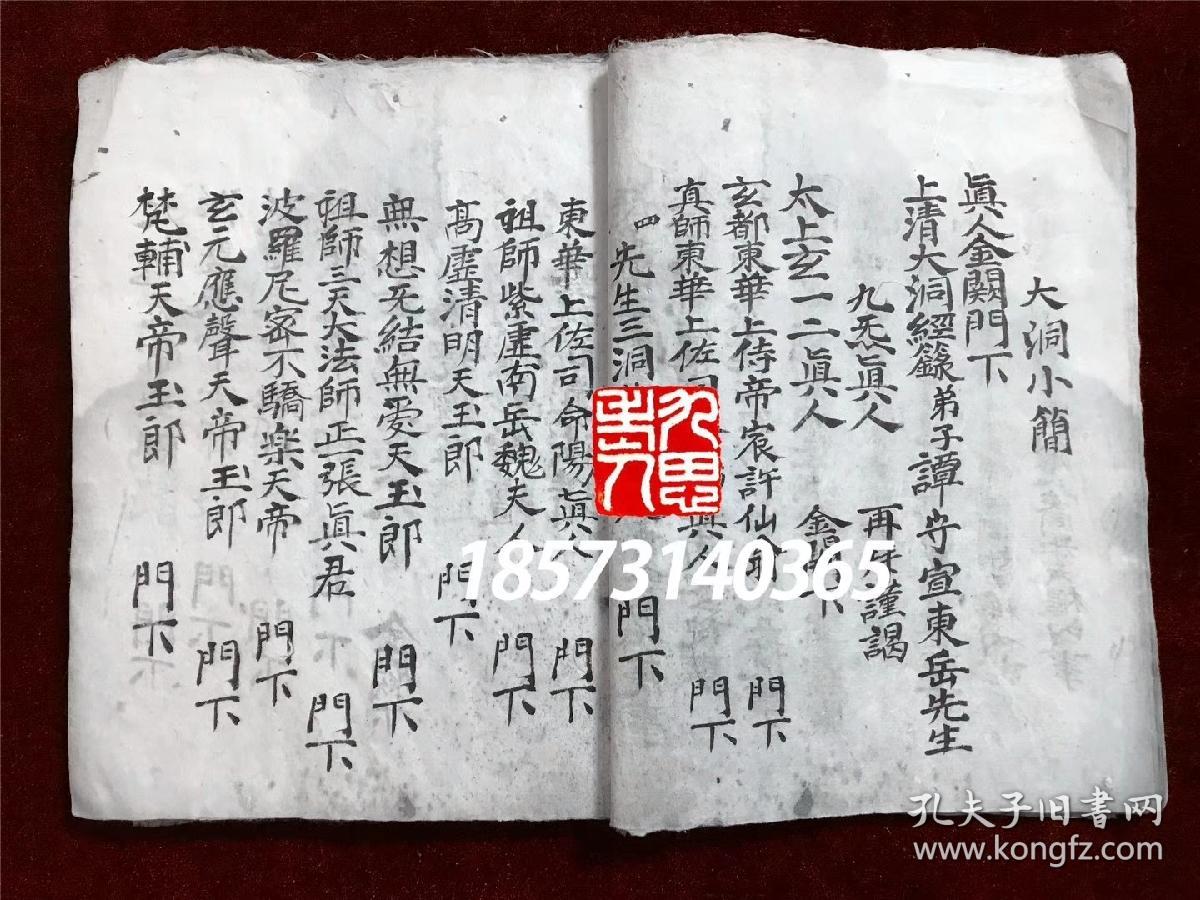 大洞小簡
眞人金闕門下
上清大洞經籙弟子譚守宣東岳先生
九炁眞人 再拜謹謁
太上玄一二眞人 金 下
玄都東華上侍帝宸許仙 門下
真師東華上佐司 眞人 門下
四先生三洞 門下
東華上佐司命陽眞人 門下
祖師紫虛南岳魏夫人 門下
高虛清明天玉郎 門下
無想无結無愛天玉郎 門下
祖師三天大法師正一張眞君 門下
波羅尼密不驕楽天帝 門下
玄元應聲天帝玉郎 門下
梵輔天帝玉郎 門下
18573140365
孔夫子旧书网
www.kongfz.com